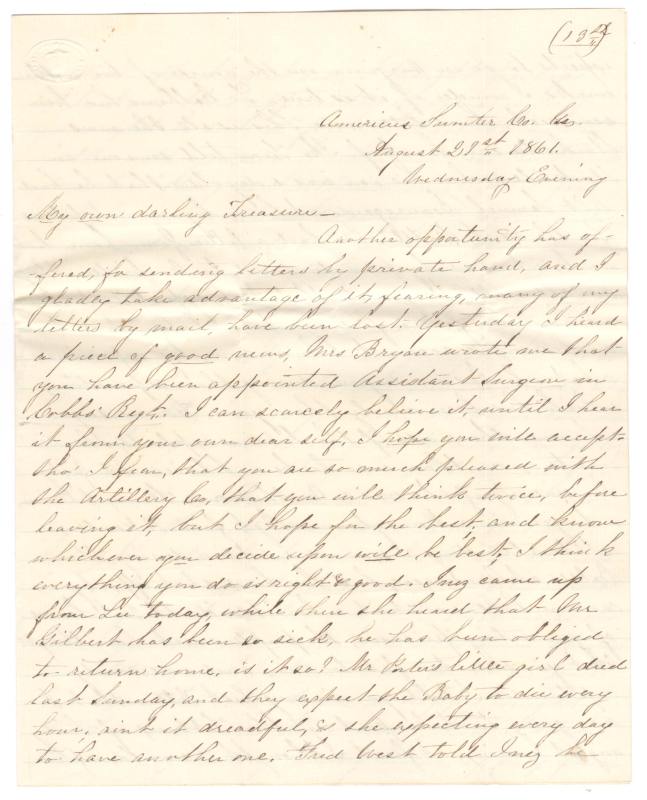 (13th)
Americus Sumter Co. Ga.
August 21st 1861.
Wednesday Evening
My own darling Treasure—
Another opportunity has of-
fered, for sending letters by private hand, and I
gladly take advantage of it, fearing, many of my
letters by mail, have been lost. Yesterday I heard
a piece of good news, Mrs Bryan wrote me that
you have been appointed Assistant Surgeon in
Cobbs' Regt. I can scarcely believe it, until I hear
it from your own dear self, I hope you will accept-
tho' I fear, that you are so much pleased with
the Artillery Co, that you will think twice, before
leaving it, but I hope for the best, and know
whichever you decide upon will be best, I think
everything you do is right & good. Inez came up
from Lee today, while there she heard that Mr
Gilbert has been so sick, he has been obliged
to return home, is it so? Mr little girl died
last Sunday, and they expect the Baby to die every
hour, aint it dreadful, & she expecting every day
to have another one. Fred West told Inez he